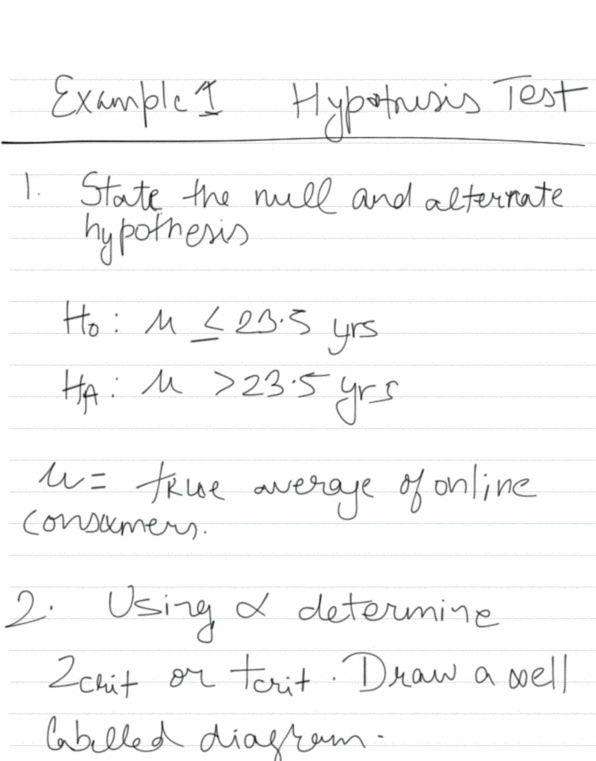 Example 1 Hypothesis Test
1. State the null and alternate
hypothesis
H₀: μ ≤ 23.5 yrs
Hᴀ: μ > 23.5 yrs
μ = true average of online
consumers.
2. Using α determine
Zcrit or tcrit. Draw a well
labelled diagram.